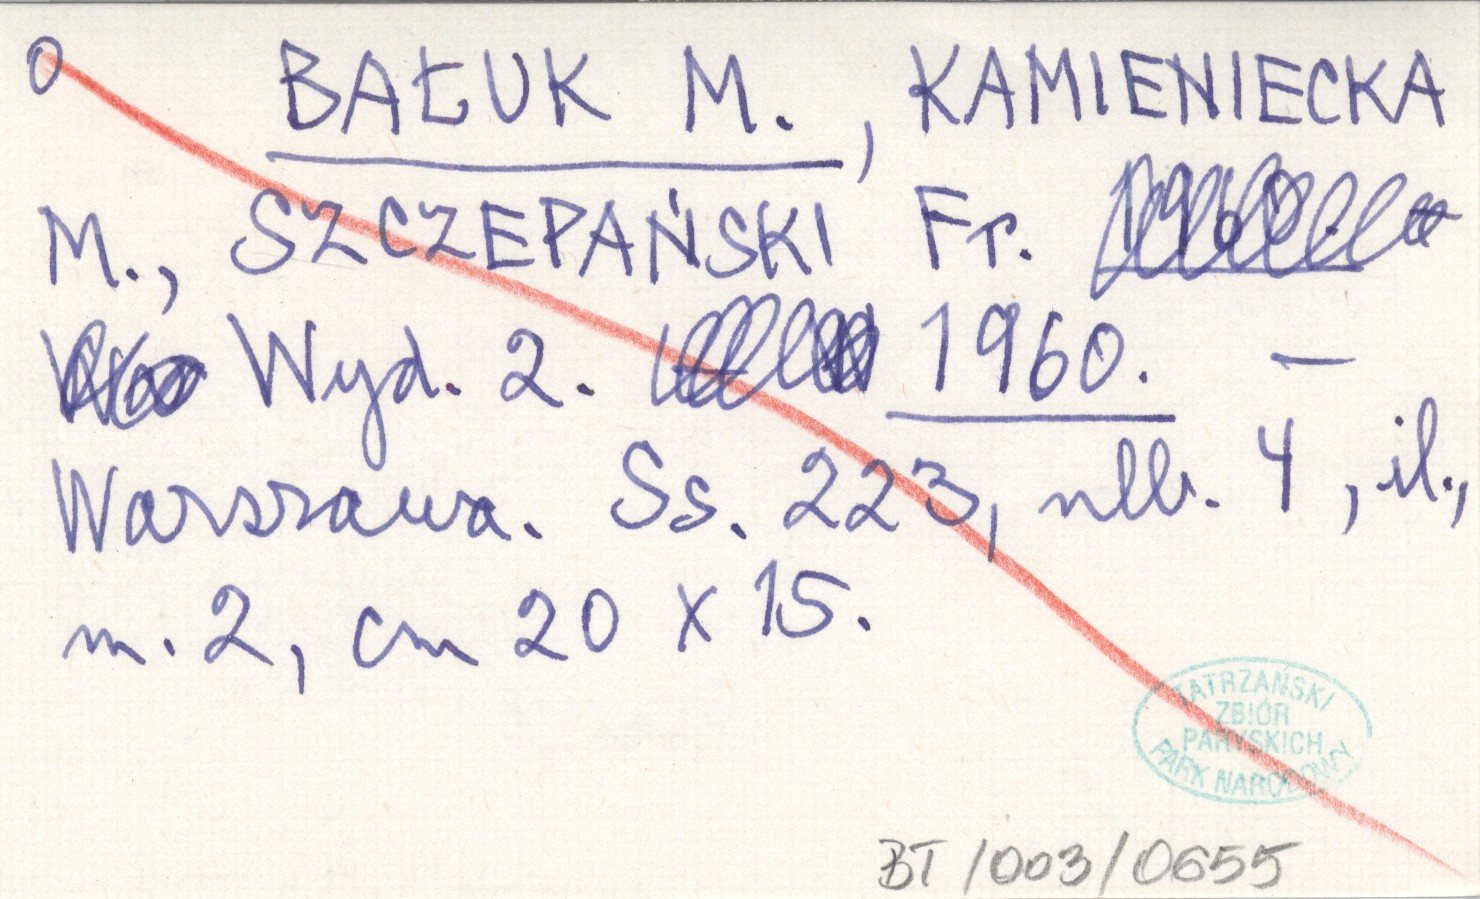 0 BAŁUK M., KAMIENIECKA
M., SZCZEPAŃSKI Fr.
Wyd. 2. 1960. —
Warszawa. Ss. 223, nlb. 4, il.,
m. 2, cm 20 x 15.
TATRZAŃSKI
ZBIÓR
PARYSKICH
PARK NARODOWY
BT/003/0655